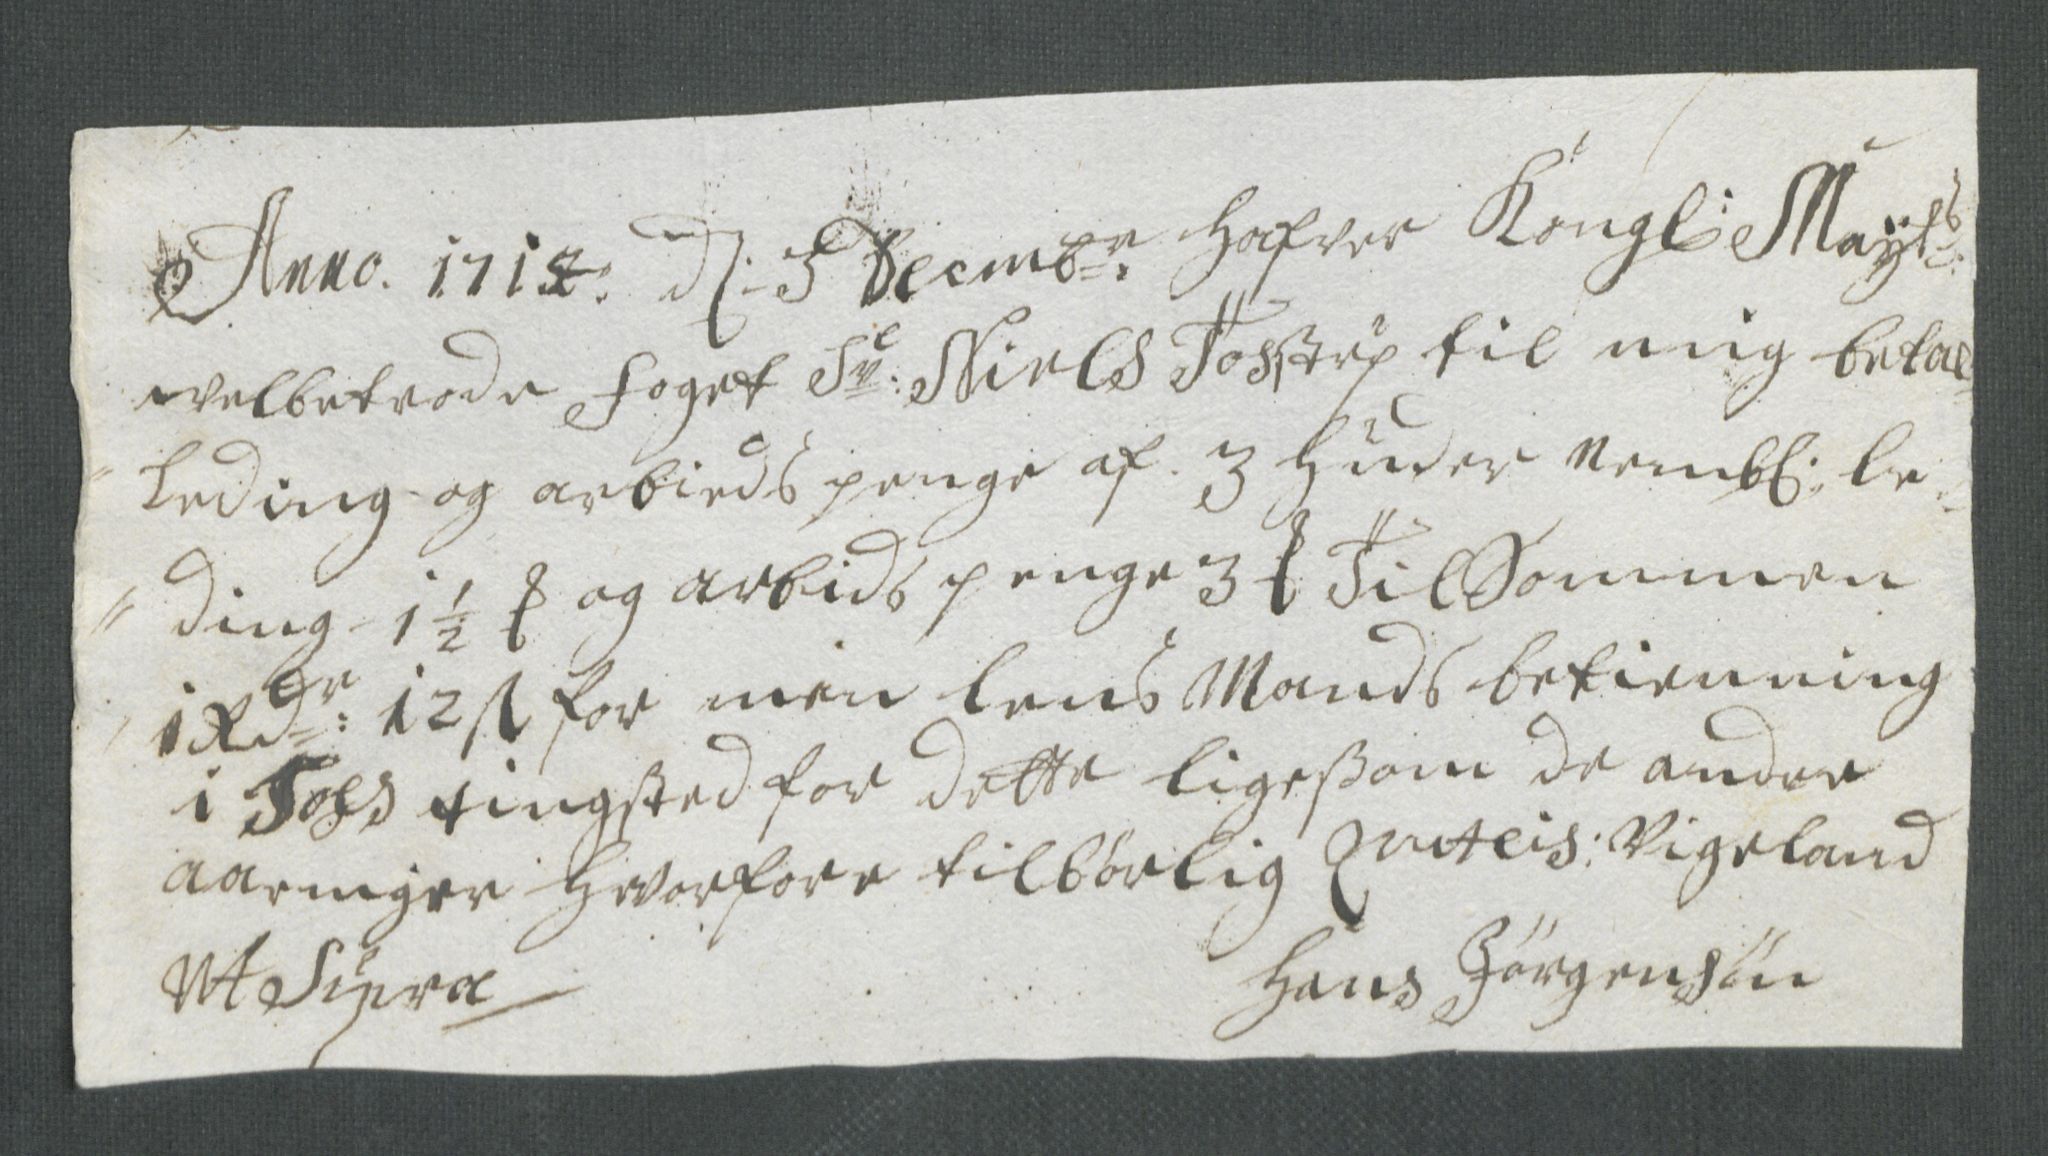 Anno. 1714. d. 3 Decembr: hafver Kongl: Mayts:
velbetrode foget Sr: Niels Tosstrup til mig betal
leding og arbieds penge af. 3 huder Nembl: le-
ding 1½ ₰ og arbids penge 3 ₰ Til Sommen
1 Rdr: 12 ß for min lens Mands betienning
i Fohs tingsted for dette ligesom de andre
aaringer hvorfore tilbørlig Quiteris: Vigeland
Ut Supra
Hans Jørgensøn